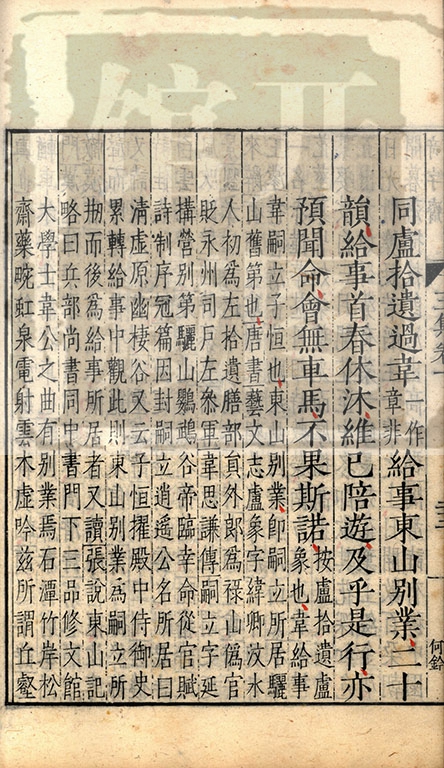 同盧拾遺過韋一作章非給事東山別業二十
韻給事首春休沐維已陪遊及乎是行亦
預聞命會無車馬不果斯諾按盧拾遺盧象也韋給事
韋嗣立子恒也東山別業即嗣立所居驪
山舊第也唐書藝文志盧象字緯卿汶水
人初為左拾遺膳部員外郎為祿山偽官
貶永州司戶左叅軍韋思謙傳嗣立字延
搆營別第驪山鸚鵡谷帝臨幸命從官賦
詩制序冠篇因封嗣立逍遙公名所居曰
清虛原幽棲谷又云子恒擢殿中侍御史
累轉給事中觀此則東山別業為嗣立所
刱而後為給事所居者又讀張說東山記
略曰兵部尚書同中書門下三品修文館
大學士韋公之曲有別業焉石潭竹岸松
齋藥畹虹泉電射雲木虛吟茲所謂丘壑
何鈴